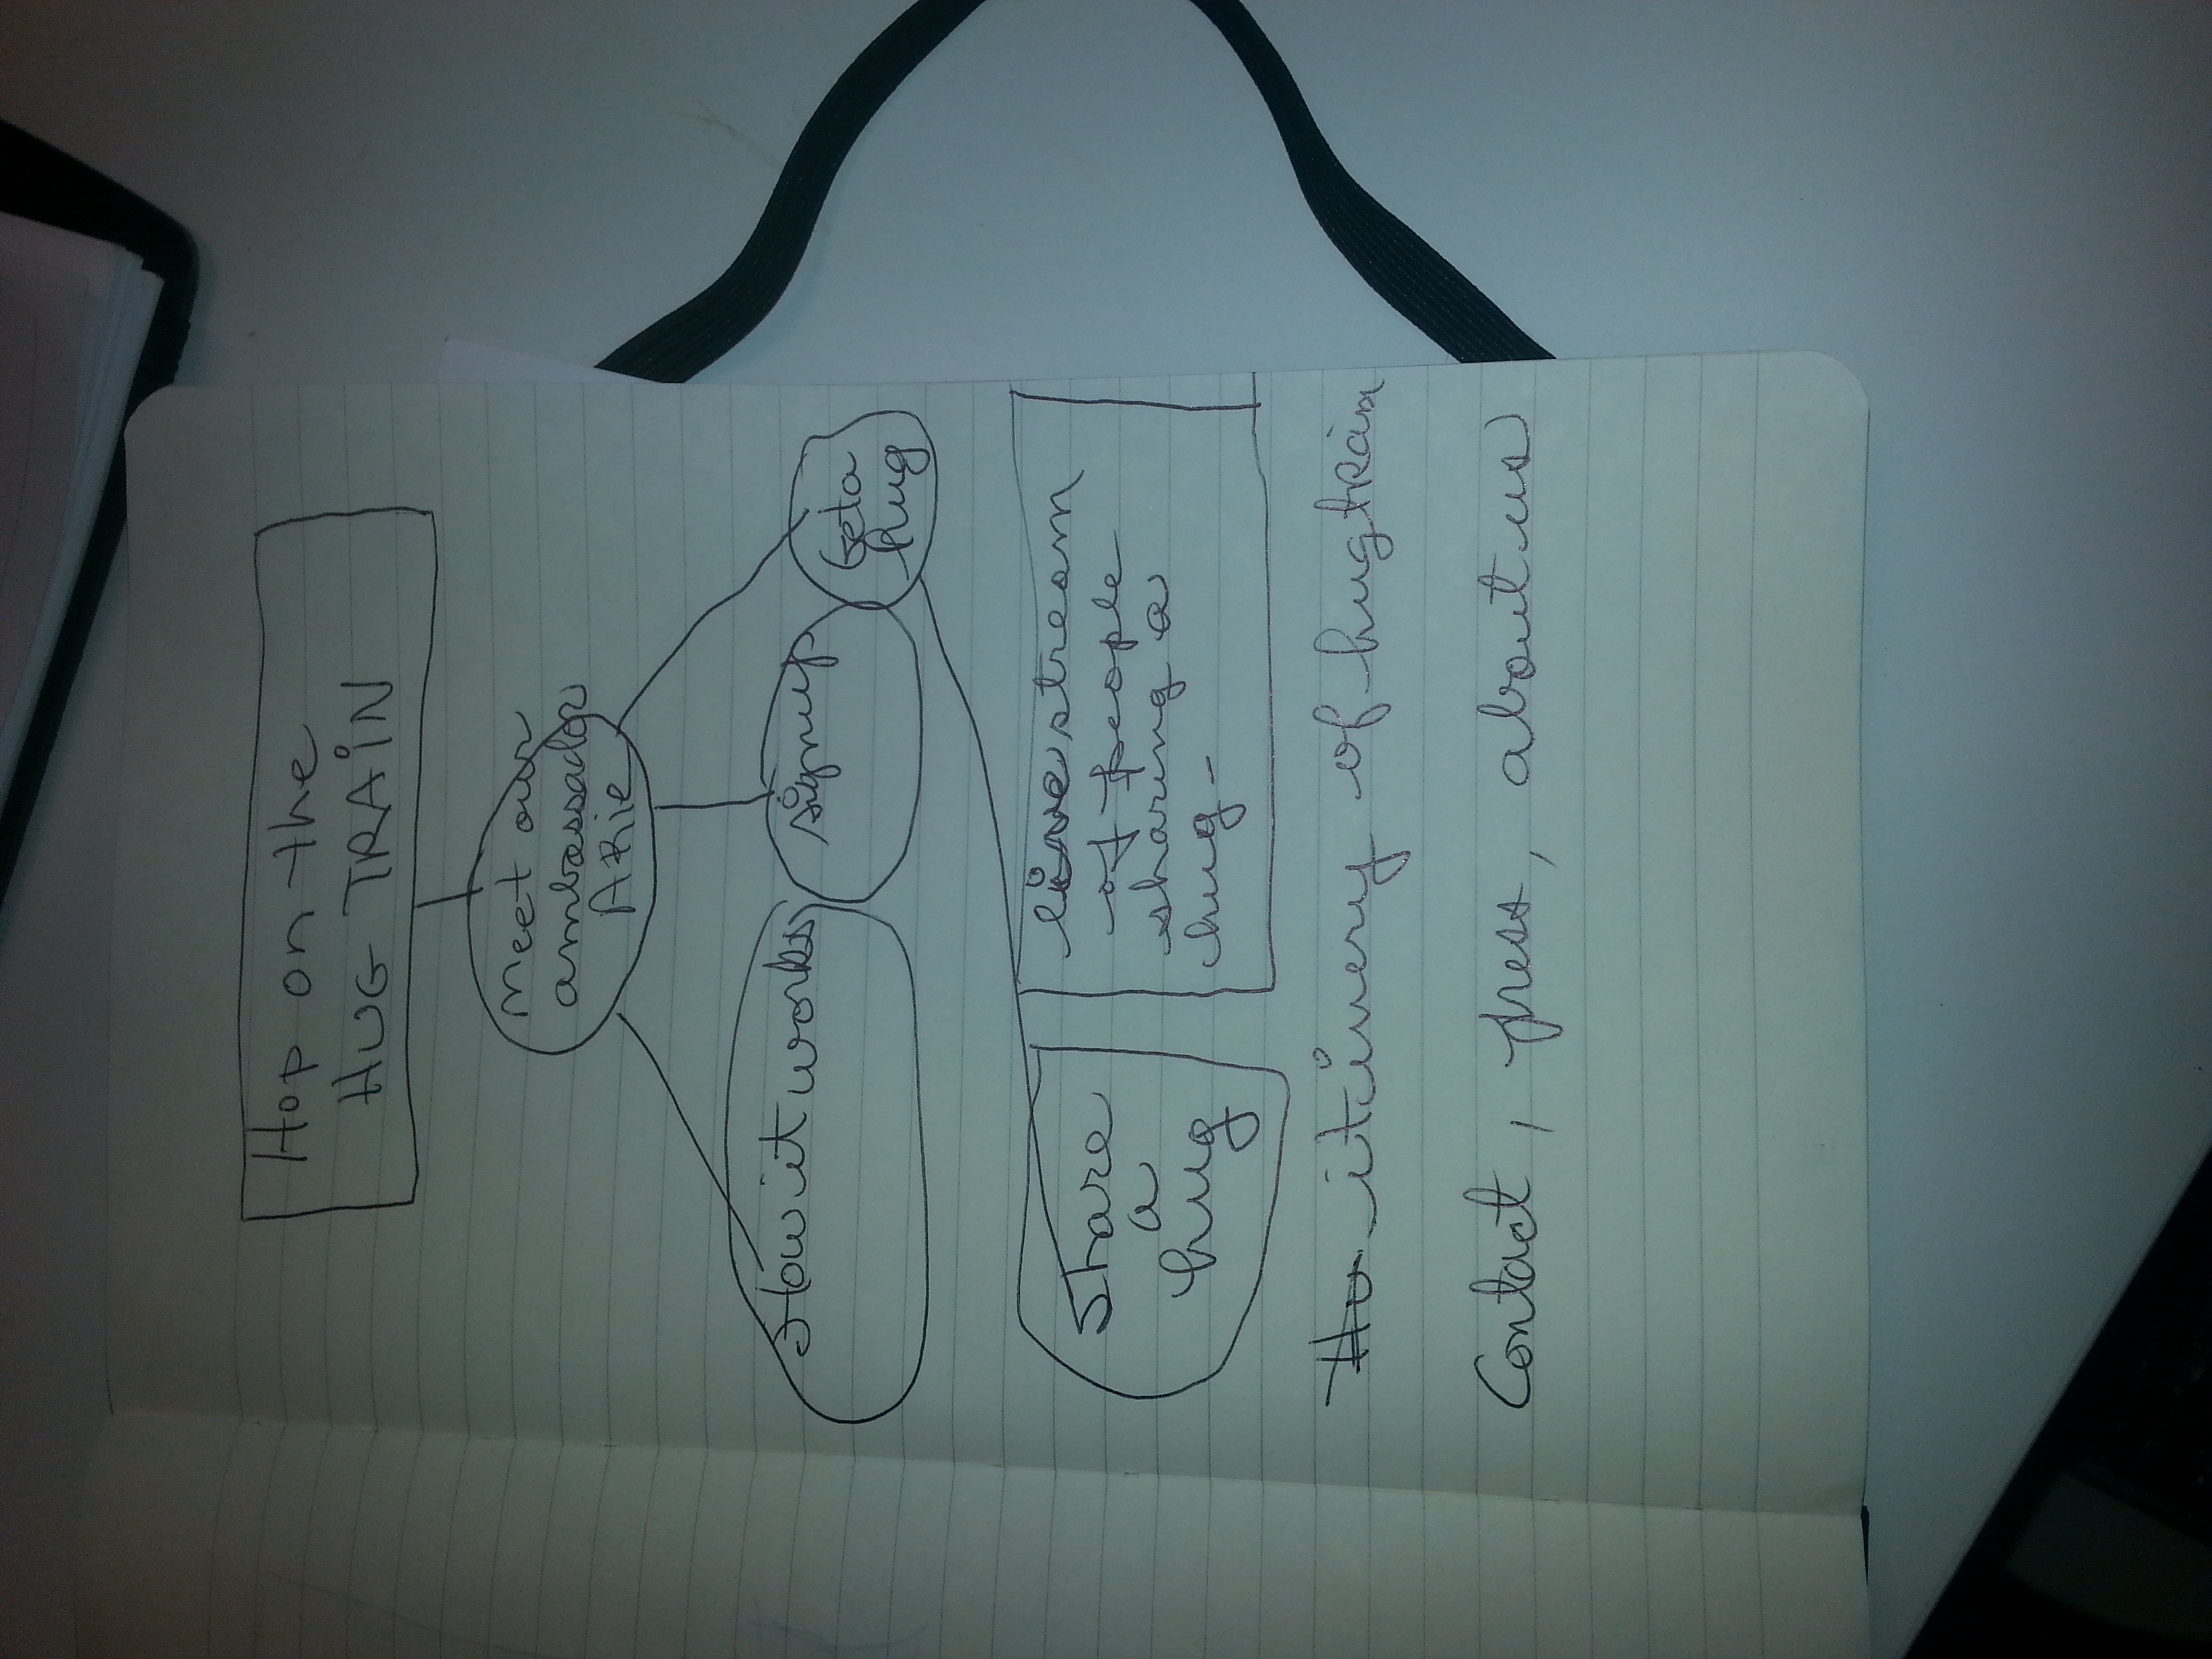 Hop on the
HUG TRAiN
Meet our
ambassador
ARie
How it works
signup
Get a
hug
Share
a
hug
live stream
of people
sharing a
hug -
itinery of hugtrain
Contact, press, about us